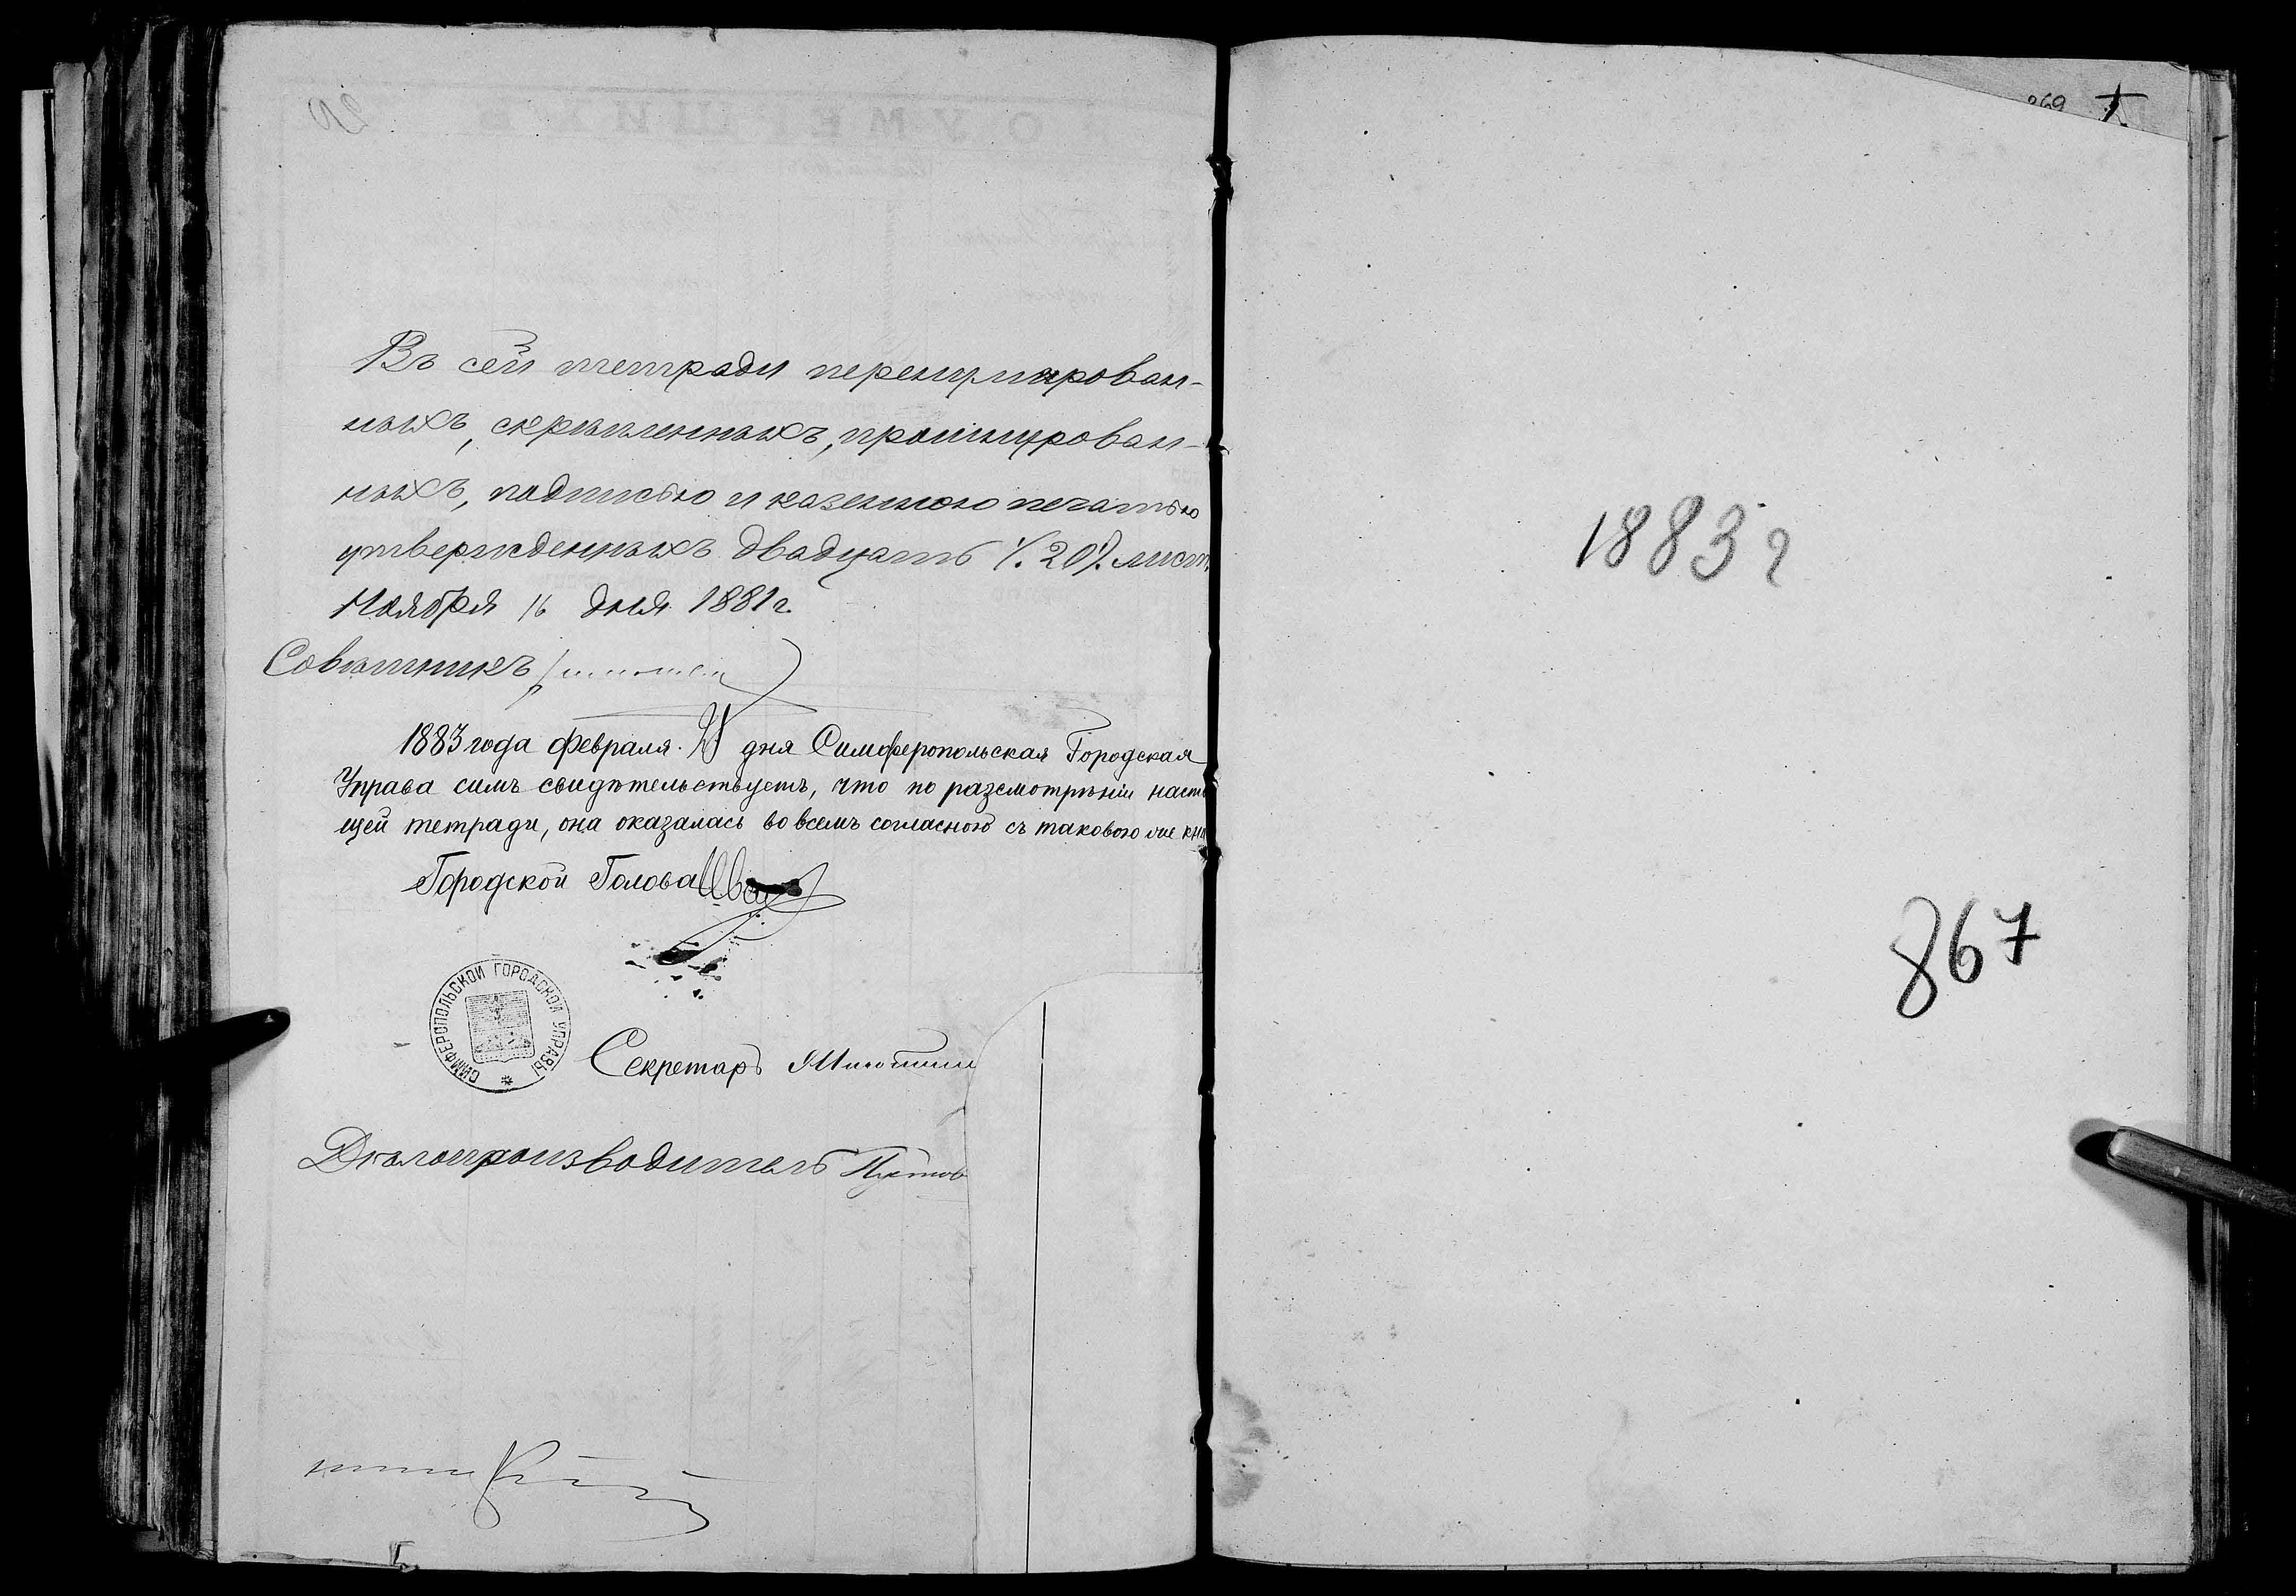 Въ сей тетради перенумирован-
ныхъ, скрѣпленныхъ, прошнурован-
ныхъ, подписью и казенною печатью
утвержденныхъ двадцать ./. 20 ./. лист.
Ноября 16 дня 1881 г.
Совѣтникъ
1883 года февраля дня Симферопольская Городская
Управа симъ свидѣтельствуетъ, что по разсмотрѣнiи насто
щей тетради, она оказалась во всемъ согласною съ таковою
Городской Голова
СИМФЕРОПОЛЬСКОЙ ГОРОДСКОЙ УПРАВЫ
Секретарь
Дѣлопроизводитель
269
1883 г
867